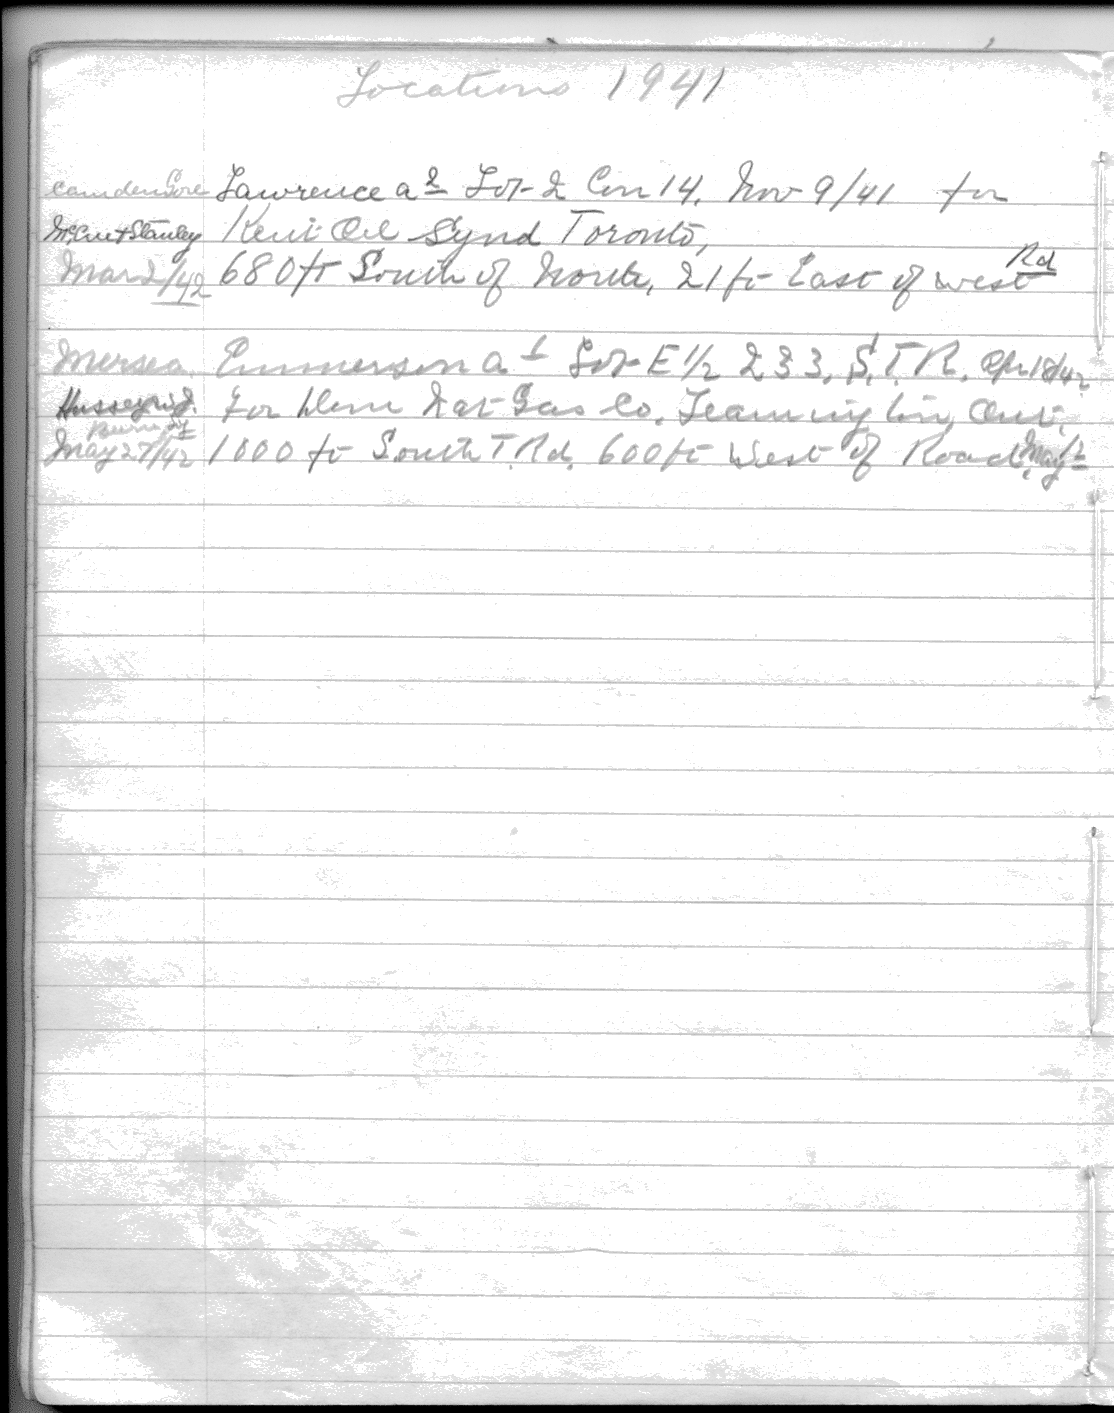 Locations 1941
Camden Gore Lawrence a 2 Lot 2 Con 14, Nov 9/41 for
McCue & Stanley Kent Oil Synd Toronto,
Mar 2/42 680 ft South of North, 21 ft East of west Rd
Mersea Emmerson a 1 Lot E 1/2 233, S.T.R. Apr 18/42
Hussey For Dom Nat Gas Co. Leamington, Ont.
May 27/42 1000 ft South T. Rd. 600 ft West of Road, May